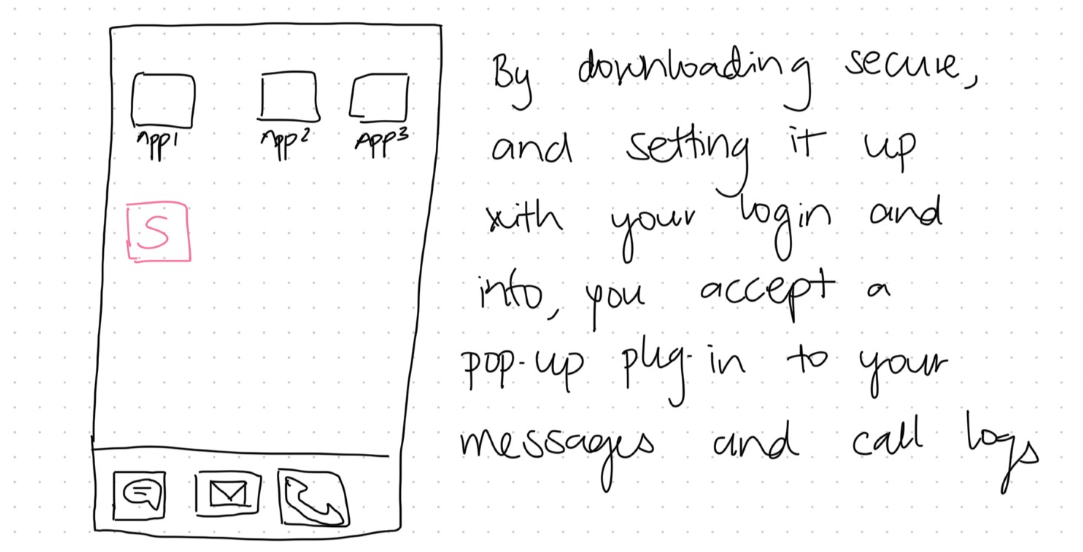 App1 App2 App3
S
By downloading secure,
and setting it up
with your login and
info, you accept a
pop-up plug-in to your
messages and call logs